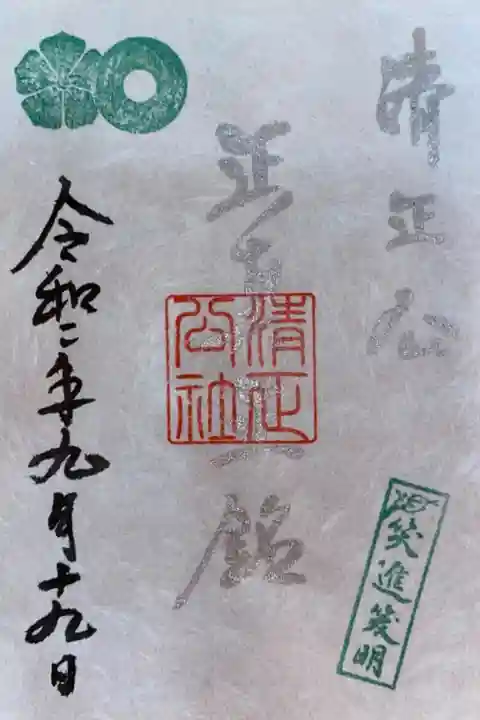 清正公
正真正銘
清正公社
令和二年九月十九日
進發明